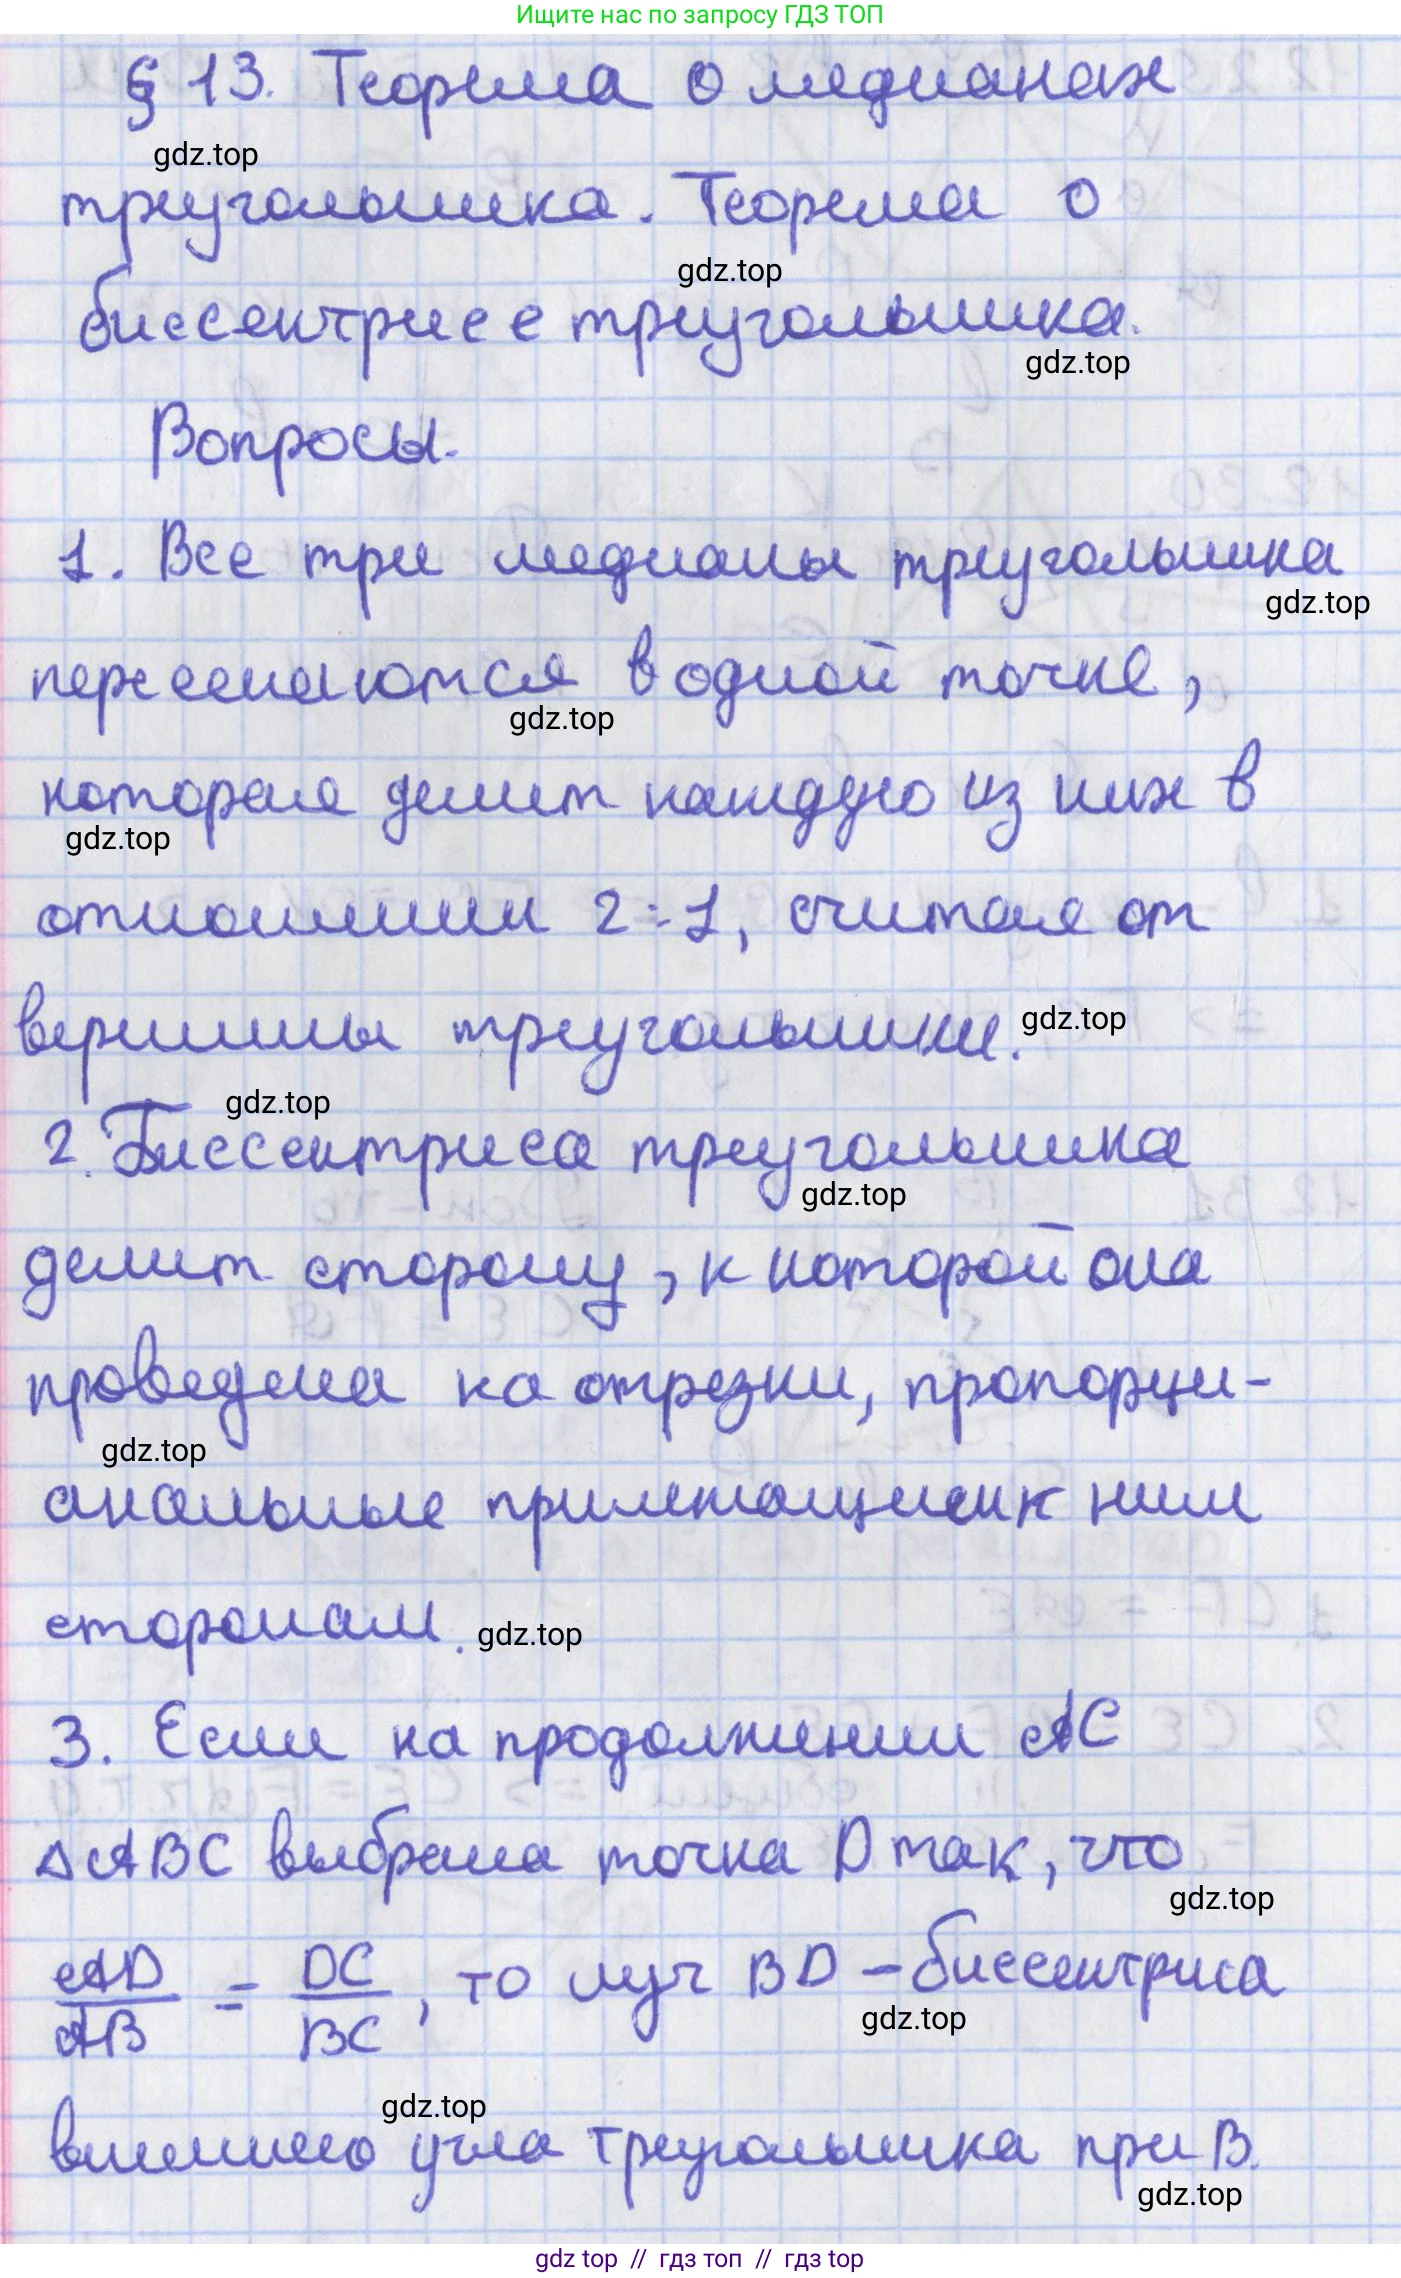 Ищите нас по запросу ГДЗ ТОП
§ 13. Теорема о медианах
gdz.top
треугольника. Теорема о
gdz.top
биссектрисе треугольника.
gdz.top
Вопросы.
1. Все три медианы треугольника
gdz.top
пересекаются в одной точке,
gdz.top
которая делит каждую из них в
gdz.top
отношении 2:1, считая от
вершины треугольники.
gdz.top
gdz.top
2. Биссектриса треугольника
gdz.top
делит сторону, к которой она
проведена на отрезки, пропорци-
gdz.top
анальные прилежащием к ним
сторонам.
gdz.top
3. Если на продолжении AC
△ABC выбрана точка D так, что
gdz.top
AD/AB = DC/BC, то луч BD - биссектриса
gdz.top
gdz.top
внешнего угла треугольника при B.
gdz.top
gdz top // гдз топ // гдз top